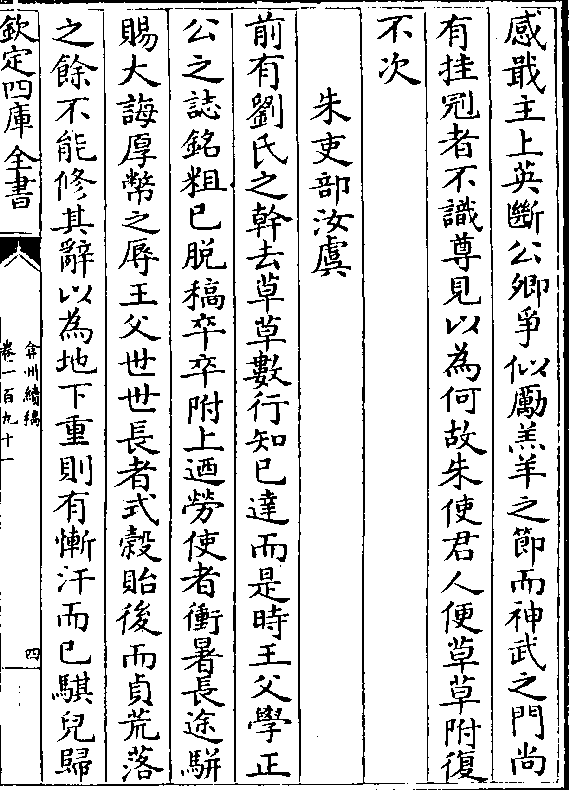 感戢主上英斷公卿爭似勵羔羊之節而神武之門尚
有挂冠者不識尊見以為何故朱使君人便草草附復
不次
朱吏部汝虞
前有劉氏之幹去草草數行知已達而是時王父學正
公之誌銘粗已脱稿卒卒附上迺勞使者衝暑長途駢
賜大誨厚幣之辱王父世世長者式穀貽後而貞荒落
之餘不能修其辭以為地下重則有慚汗而已騏兒歸
欽定四庫全書
弇州續稿
卷一百九十一
四